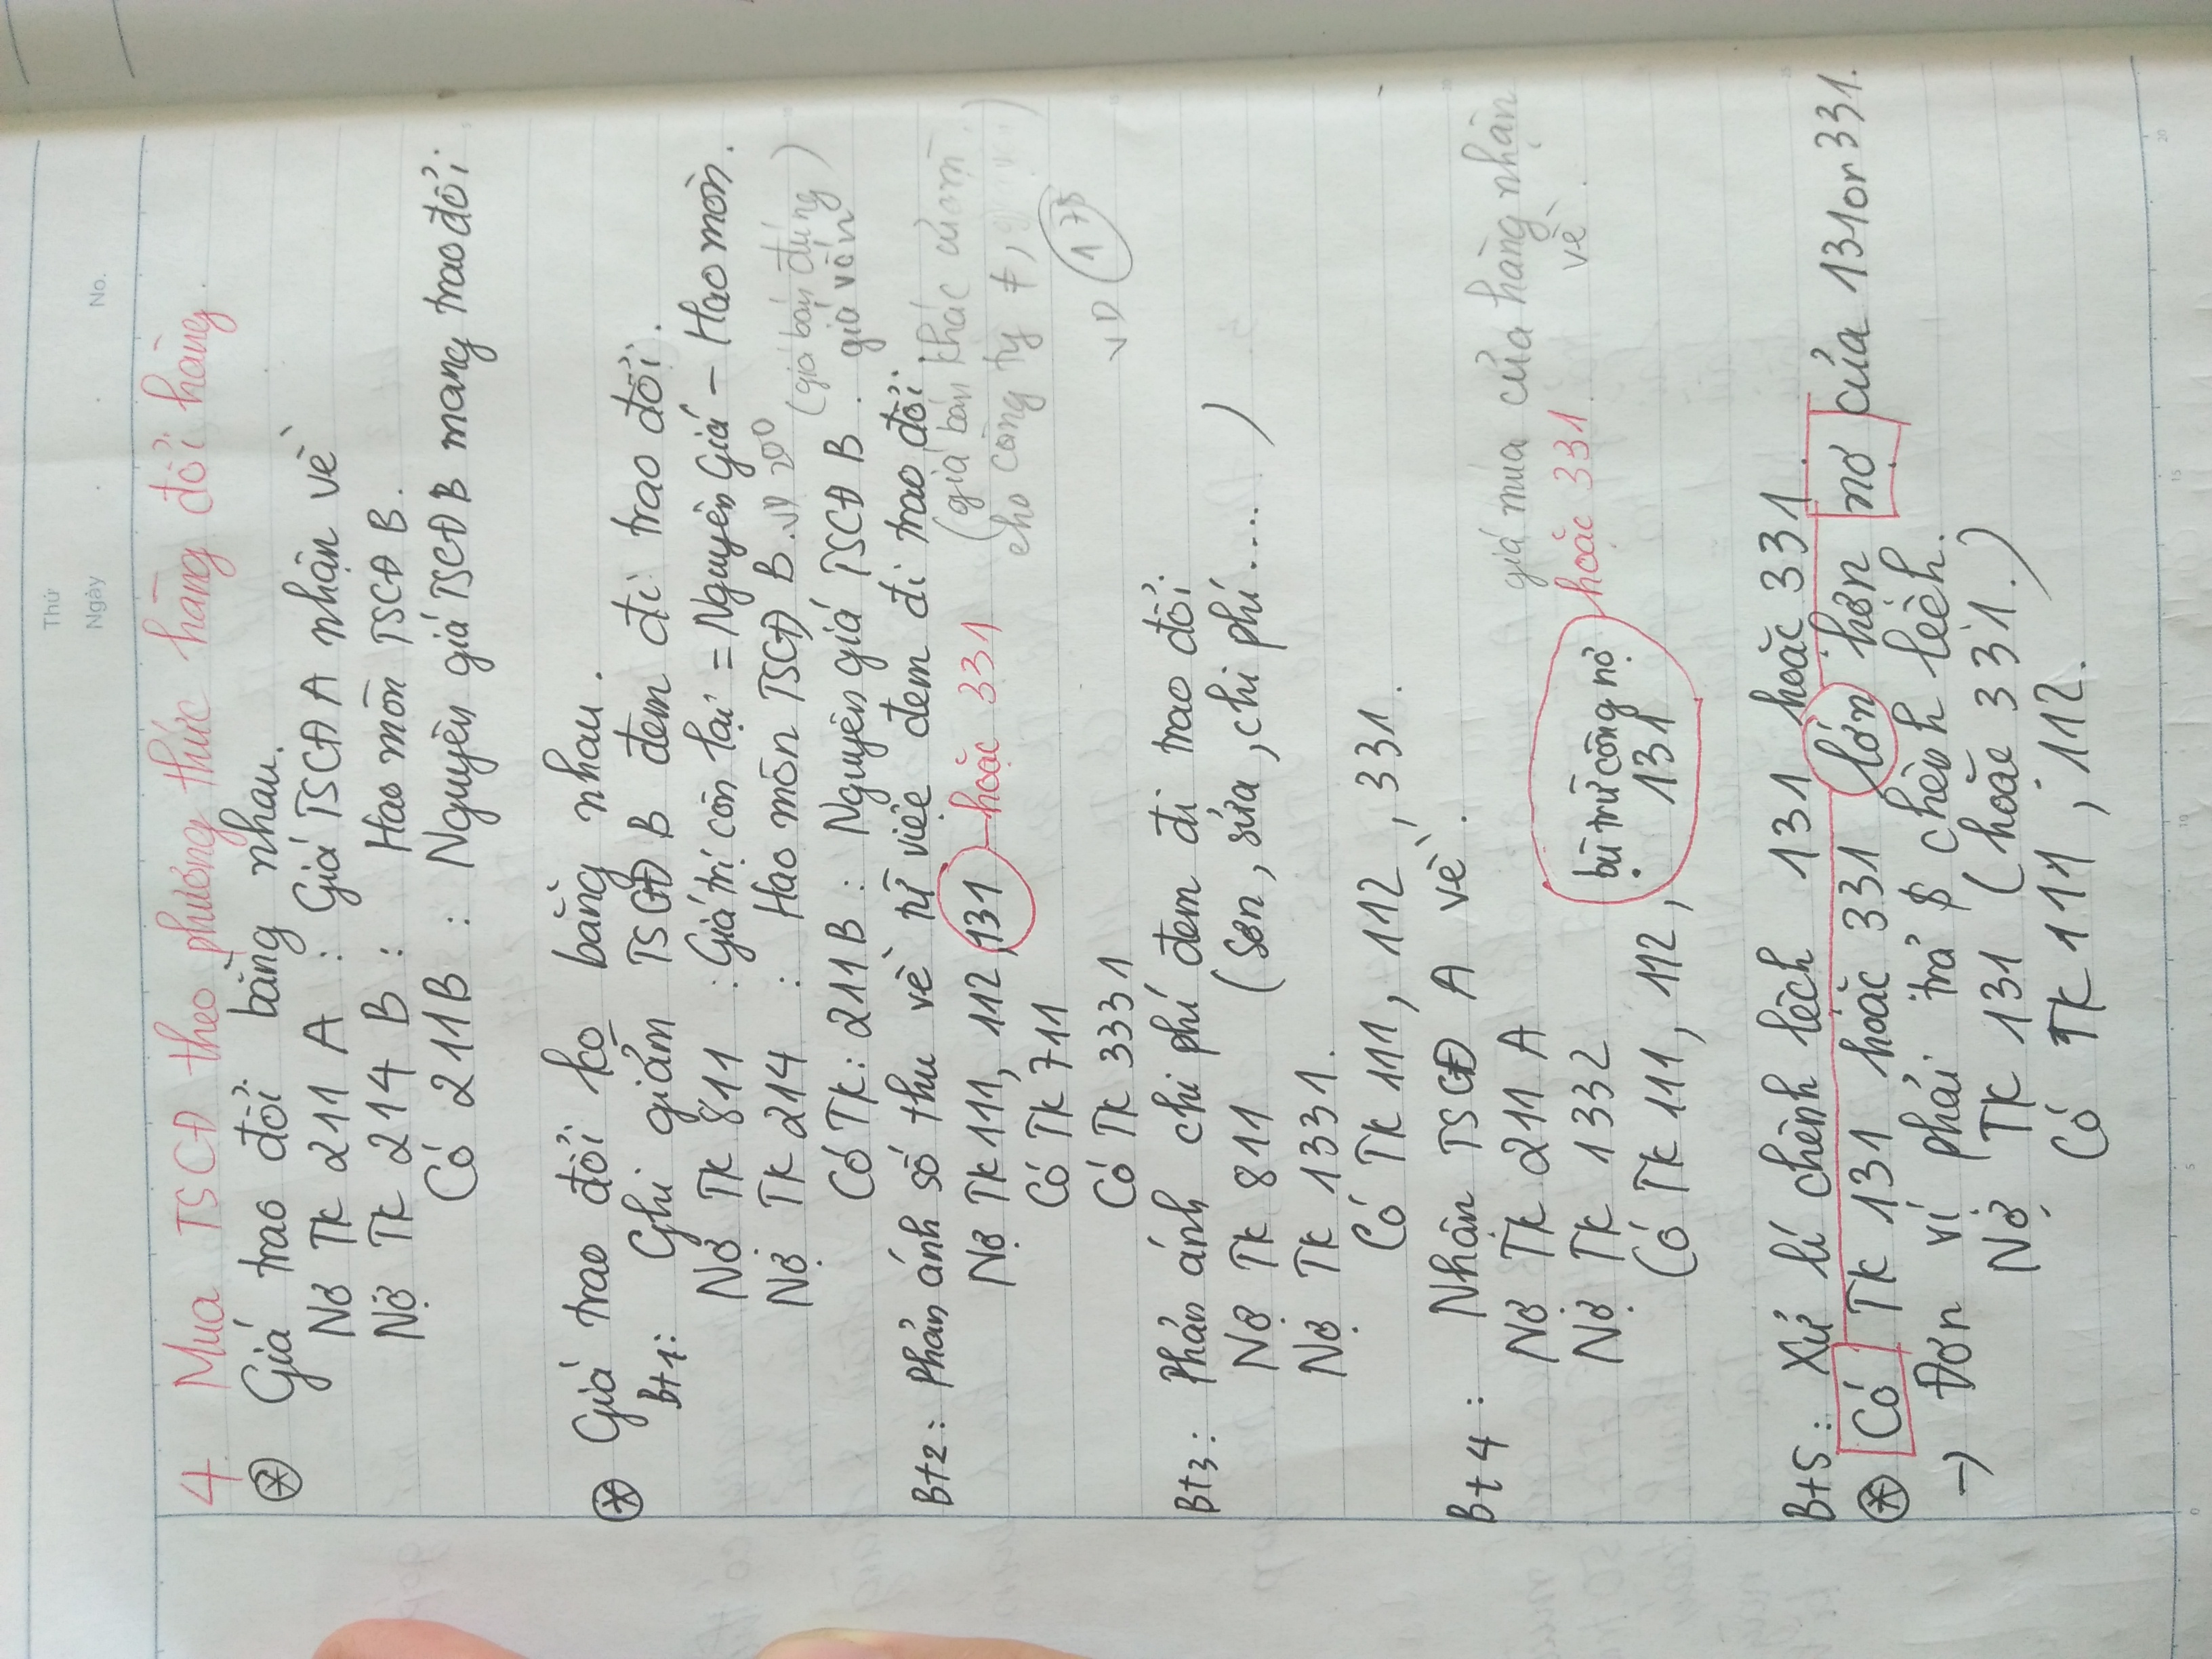 Thứ
Ngày . . No.
4. Mua TSCĐ theo phương thức hàng đổi hàng.
⊛ Giá trao đổi bằng nhau.
Nợ TK 211 A : Giá TSCĐ A nhận về
Nợ TK 214 B : Hao mòn TSCĐ B.
Có 211B : Nguyên giá TSCĐ B mang trao đổi
⊛ Giá trao đổi ko bằng nhau.
Bt1: Ghi giảm TSCĐ B đem đi trao đổi.
Nợ TK 811 : Giá trị còn lại = Nguyên Giá - Hao mòn.
Nợ TK 214 : Hao mòn TSCĐ B. VD 200 (giá bán đúng
Có TK: 211B : Nguyên giá TSCĐ B. giá vốn)
Bt2: Phản ánh số thu về từ việc đem đi trao đổi
Nợ TK 111, 112, 131 hoặc 331 (giá bán khác
Có TK 711 cho công ty ≠,
Có TK 3331 VD 175
Bt3: Phản ánh chi phí đem đi trao đổi.
Nợ TK 811 (Sơn, sửa, chi phí....)
Nợ TK 1331.
Có TK 111, 112, 331.
Bt4: Nhận TSCĐ A về.
Nợ TK 211 A giá mua của hàng nhận
Nợ TK 1332 hoặc 331. về.
Có TK 111, 112, bù trừ công nợ 131
Bt5: Xử lí chênh lệch 131 hoặc 331.
⊛ Có TK 131 hoặc 331 lớn hơn nợ của 131 or 331.
→ Đơn vị phải trả $ chênh lệch.
Nợ TK 131 (hoặc 331.)
Có TK 111, 112.